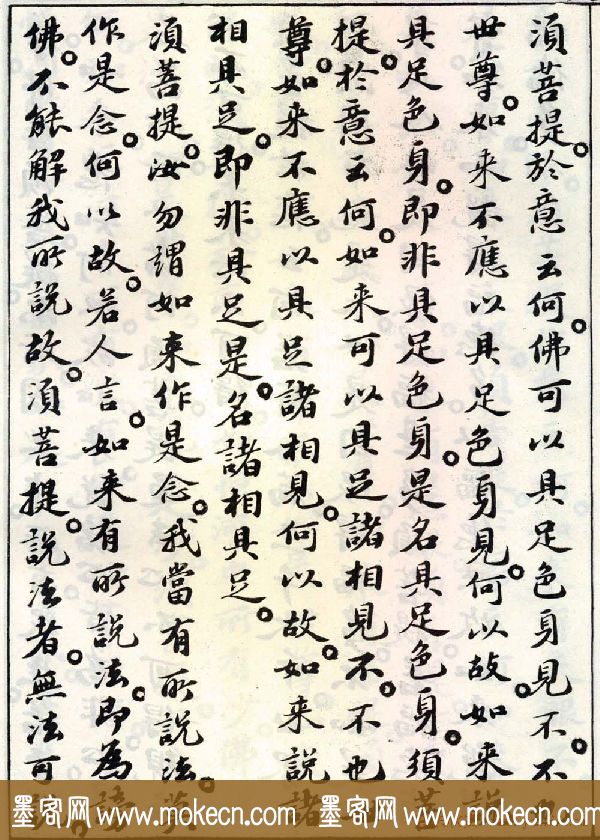 須菩提。於意云何。佛可以具足色身見不。不
世尊。如来不應以具足色身見。何以故。如来說
具足色身。即非具足色身。是名具足色身。須菩
提。於意云何。如来可以具足諸相見不。不也
尊。如来不應以具足諸相見。何以故。如来說諸
相具足。即非具足。是名諸相具足。
須菩提。汝勿謂如来作是念。我當有所說法。莫
作是念。何以故。若人言。如来有所說法。即為謗
佛。不能解我所說故。須菩提。說法者。無法可
墨客网 www.mokecn.com 墨客网 www.mokecn.com